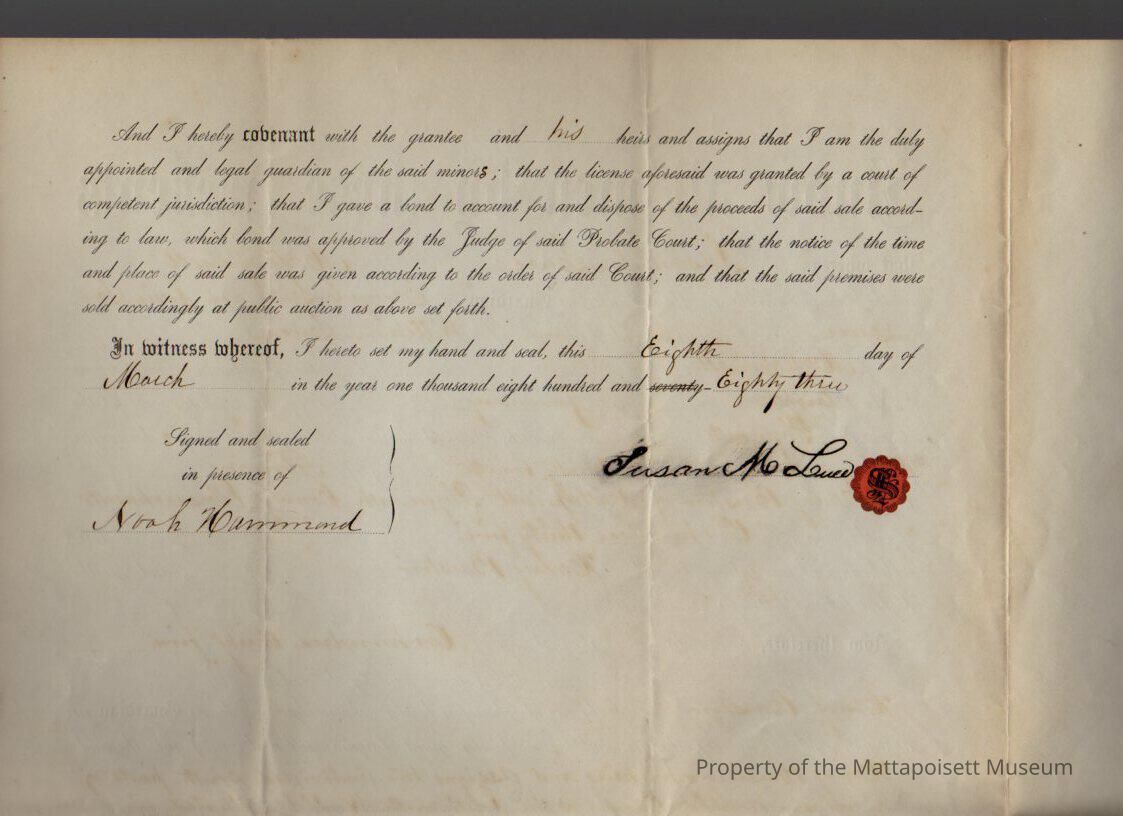 And I hereby covenant with the grantee and his heirs and assigns that I am the duly
appointed and legal guardian of the said minors; that the license aforesaid was granted by a court of
competent jurisdiction; that I gave a bond to account for and dispose of the proceeds of said sale accord-
ing to law, which bond was approved by the Judge of said Probate Court; that the notice of the time
and place of said sale was given according to the order of said Court; and that the said premises were
sold accordingly at public auction as above set forth.
In witness whereof, I hereto set my hand and seal, this Eighth day of
March in the year one thousand eight hundred and seventy- Eighty three
Signed and sealed
in presence of
Noah Hammond
Susan M
Property of the Mattapoisett Museum